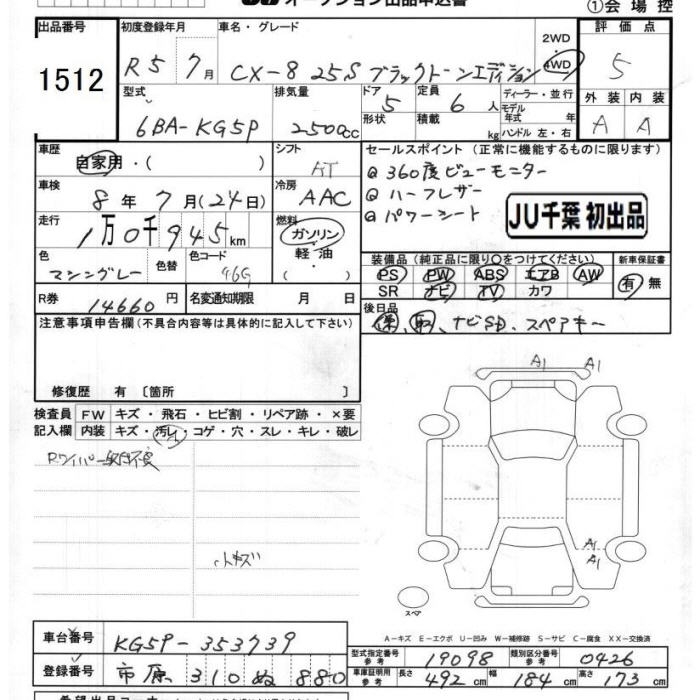 オークション出品申込書
①会場控
出品番号
1512
初度登録年月
R5 7月
車名・グレード
CX-8 25S ブラックトーンエディション
2WD
4WD
評価点
5
型式
6BA-KG5P
排気量
2500cc
ドア 5
形状
定員 6人
積載 kg
ディーラー・並行
モデル
年式 年
ハンドル 左・右
外装 内装
A A
車歴
自家用・( )
シフト
AT
セールスポイント(正常に機能するものに限ります)
@360度ビューモニター
@ハーフレザー
@パワーシート
JU千葉 初出品
車検
8年 7月(24日)
冷房
AAC
走行
1万0千945km
燃料
ガソリン
軽油・
( )
色
マシングレー
色替
色コード
46G
装備品(純正品に限り○をつけてください)
PS PW ABS エアB AW
SR ナビ TV カワ
新車保証書
有 無
R券 14660円
名変通知期限 月 日
後日品
保、取、ナビSD、スペアキー
注意事項申告欄(不具合内容等は具体的に記入して下さい)
修復歴 有〔箇所 〕
検査員
記入欄
FW キズ・飛石・ヒビ割・リペア跡・×要
内装 キズ・汚レ・コゲ・穴・スレ・キレ・破レ
Rワイパー
小キズ
A1 A1
A1
A1
スペア
A-キズ E-エクボ U-凹み W-補修跡 S-サビ C-腐食 XX-交換済
車台番号
KG5P-353739
登録番号
市原 310 ぬ 880
型式指定番号
参考
19098
類別区分番号
参考
0426
車庫証明用
参考
長さ 492cm 幅 184cm 高さ 173cm